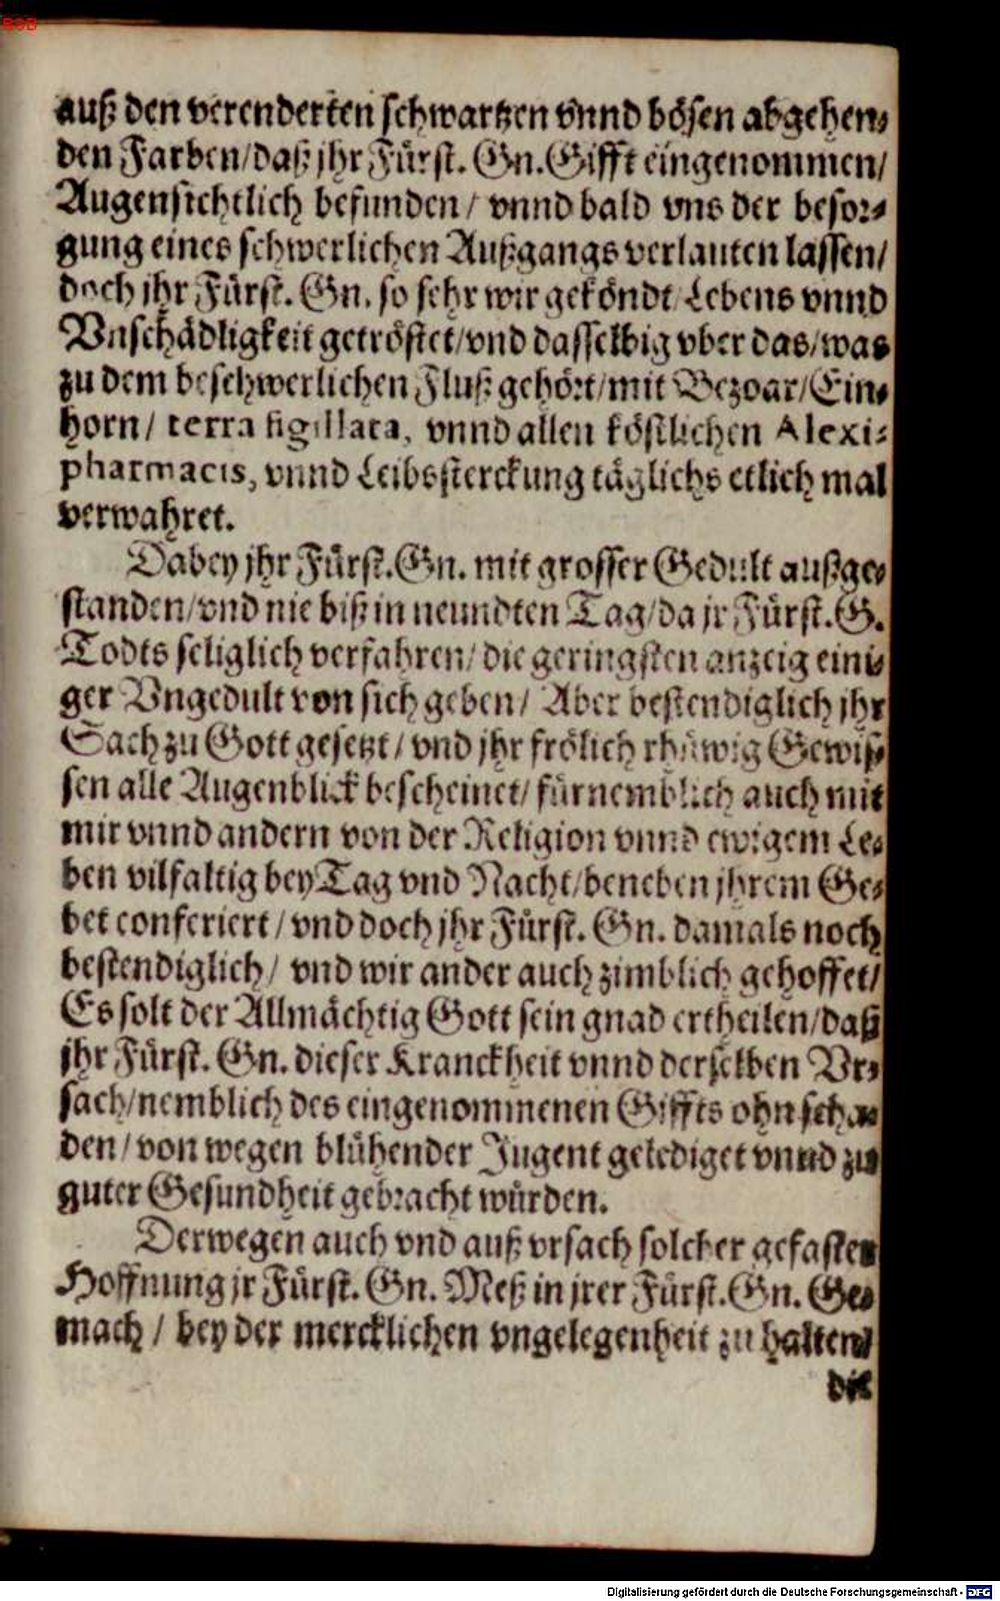 auß den verenderten schwartzen vnnd bösen abgehen⸗
den Farben/daß jhr Fürst. Gn. Gifft eingenommen/
Augensichtlich befunden/ vnnd bald vns der besor⸗
gung eines schwerlichen Außgangs verlauten lassen/
doch jhr Fürst. Gn. so sehr wir geköndt/Lebens vnnd
Vnschädligkeit getröstet/vnd dasselbig vber das/was
zu dem beschwerlichen Fluß gehört/mit Bezoar/Ein⸗
horn/ terra sigillata, vnnd allen köstlichen Alexi⸗
pharmacis, vnnd Leibsterckung täglichs etlich mal
verwahret.
Dabey jhr Fürst. Gn. mit grosser Gedult außge⸗
standen/vnd nie biß in neundten Tag/da jr Fürst. G.
Todts seliglich verfahren/die geringsten anzeig eini⸗
ger Vngedult von sich geben/ Aber bestendiglich jhr
Sach zu Gott gesetzt/ vnd jhr frölich rhüwig Gewiß⸗
sen alle Augenblick bescheinet/ fürnemblich auch mit
mir vnnd andern von der Religion vnnd ewigem Le⸗
ben vilfaltig bey Tag vnd Nacht/beneben jhrem Ge⸗
bet conferiert/ vnd doch jhr Fürst. Gn. damals noch
bestendiglich/ vnd wir ander auch zimblich gehoffet/
Es solt der Allmächtig Gott sein gnad ertheilen/daß
jhr Fürst. Gn. dieser Kranckheit vnnd derselben Vr⸗
sach/nemblich des eingenommenen Giffts ohn scha⸗
den/von wegen blühender Jugent gelediget vnnd zu
guter Gesundheit gebracht würden.
Derwegen auch vnd auß vrsach solcher gefasten
Hoffnung jr Fürst. Gn. Meß in jrer Fürst. Gn. Ge⸗
mach / bey der mercklichen vngelegenheit zu halten/
die
Digitalisierung gefördert durch die Deutsche Forschungsgemeinschaft - DFG